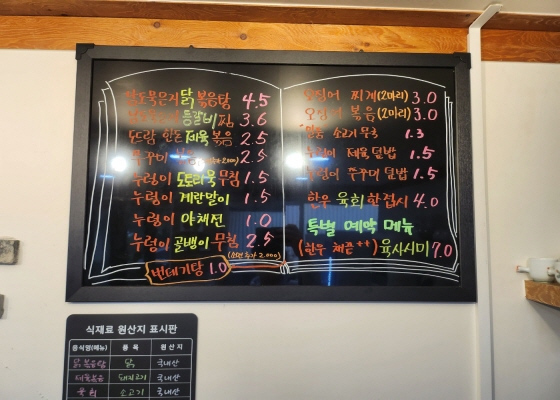 묵은지 닭볶음탕 4.5
등갈비찜 3.6
한돈 제육 볶음 2.5
쭈꾸미 볶음 2.5
누렁이 도토리묵 무침 1.5
누렁이 계란말이 1.5
누렁이 야채전 1.0
누렁이 골뱅이 무침 2.5
(소면추가 2.000)
번데기탕 1.0
오징어 찌개 (2마리) 3.0
오징어 볶음 (2마리) 3.0
소고기 무국 1.3
누렁이 제육 덮밥 1.5
누렁이 쭈꾸미 덮밥 1.5
한우 육회 한접시 4.0
특별 예약 메뉴
(한우 채끝++) 육사시미 7.0
식재료 원산지 표시판
음식명(메뉴) 품 목 원 산 지
닭볶음탕 닭 국내산
제육볶음 돼지고기 국내산
육회 소고기 국내산